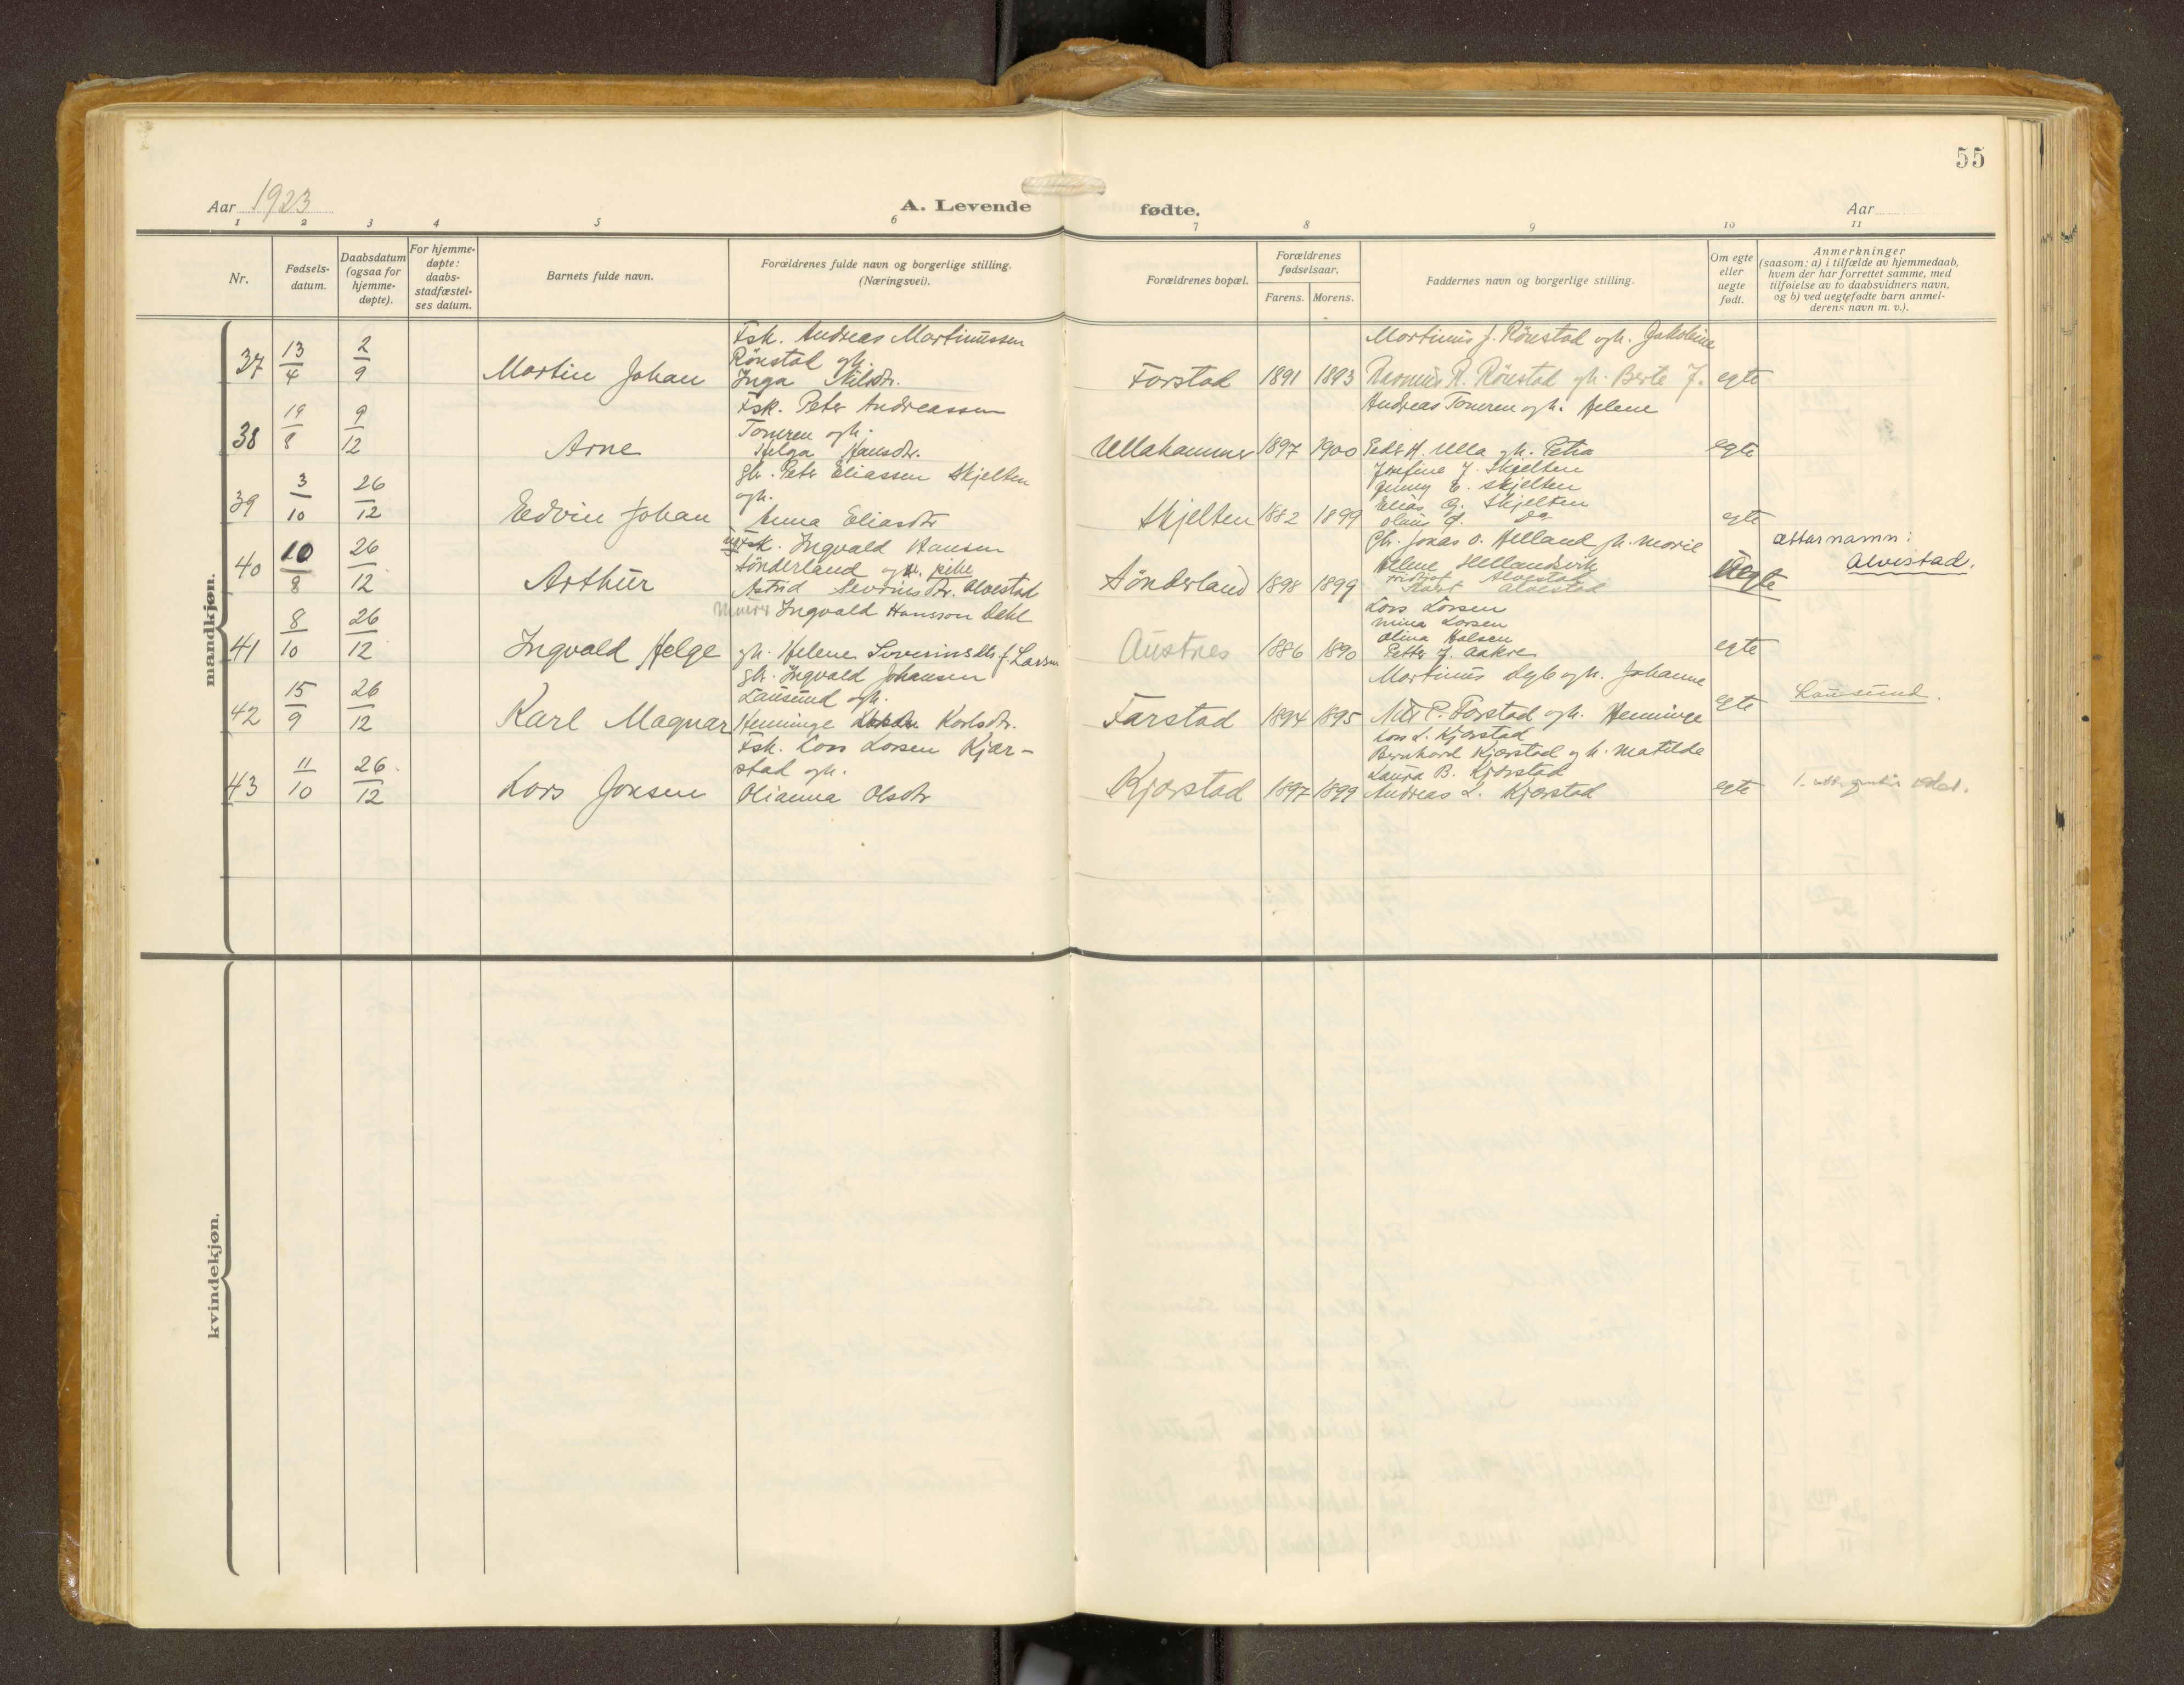 55
Aar 1923
A. Levende fødte.
Aar
1 2 3 4 5 6 7 8 9 10 11
Nr.
Fødsels-
datum.
Daabsdatum
(ogsaa for
hjemme-
døpte).
For hjemme-
døpte:
daabs-
stadfæstel-
ses datum.
Barnets fulde navn.
Forældrenes fulde navn og borgerlige stilling.
(Næringsvei).
Forældrenes bopæl.
Forældrenes
fødselsaar.
Farens. Morens.
Faddernes navn og borgerlige stilling.
Om egte
eller
uegte
født.
Anmerkninger
(saasom: a) i tilfælde av hjemmedaab,
hvem der har forrettet samme, med
tilføielse av to daabsvidners navn,
og b) ved uegtefødte barn anmel-
derens navn m. v.).
mandkjøn.
37 13/4 2/9 Martin Johan
Fsk. Andreas Martinussen
Rönstad og h.
Inga Nilsdr.
Farstad 1891 1893
Martinus J. Rönstad og h. Jakobine
Rasmus R. Rönstad og h. Berte J.
egte
38 19/8 9/12 Arne
Fsk. Peter Andreassen
Toneren og h.
Helga Hansdr.
Ullahammer 1897 1900
Andreas Toneren og h. Helene
Peder H. Ulla og h. Petra
egte
39 3/10 26/12 Edvin Johan
gbr. Peter Eliassen Skjelten
og h.
Anna Eliasdr
Skjelten 1882 1899
Josefine J. Skjelten
Jenny E. Skjelten
Elias G. Skjelten
Olaus do
egte
40 10/8 26/12 Arthur
Fsk. Ingvald Hansen
Sønderland og pike
Astrid Severinsdtr. Alvestad
Sønderland 1898 1899
Gbr. Jonas O. Helland og h. Marie
Helene Hellandsvik
Fridtjof Alvestad
Alvestad
Uegte
ættarnamn:
Alvestad.
41 8/10 26/12 Ingvald Helge
Murer Ingvald Hansson Dahl
og h. Helene Severinsdtr f. Larsen
Austnes 1886 1890
Lars Larsen
Mina Larsen
Olina Halsen
Petter J. Aakre
egte
42 15/9 26/12 Karl Magnar
gbr. Ingvald Johansen
Lausund og h.
Henninge Karlsdr.
Farstad 1894 1895
Martinus Dyb og h. Johanne
Nils P. Farstad og h. Henninge
egte
Lausund.
43 11/10 26/12 Lars Jonsen
Fsk. Lars Larsen Kjær-
stad og h.
Olianna Olsdtr
Kjærstad 1897 1899
Lars L. Kjærstad
Bernhard Kjærstad og h. Matilde
Laura B. Kjærstad
Andreas L. Kjærstad
egte
kvindekjøn.